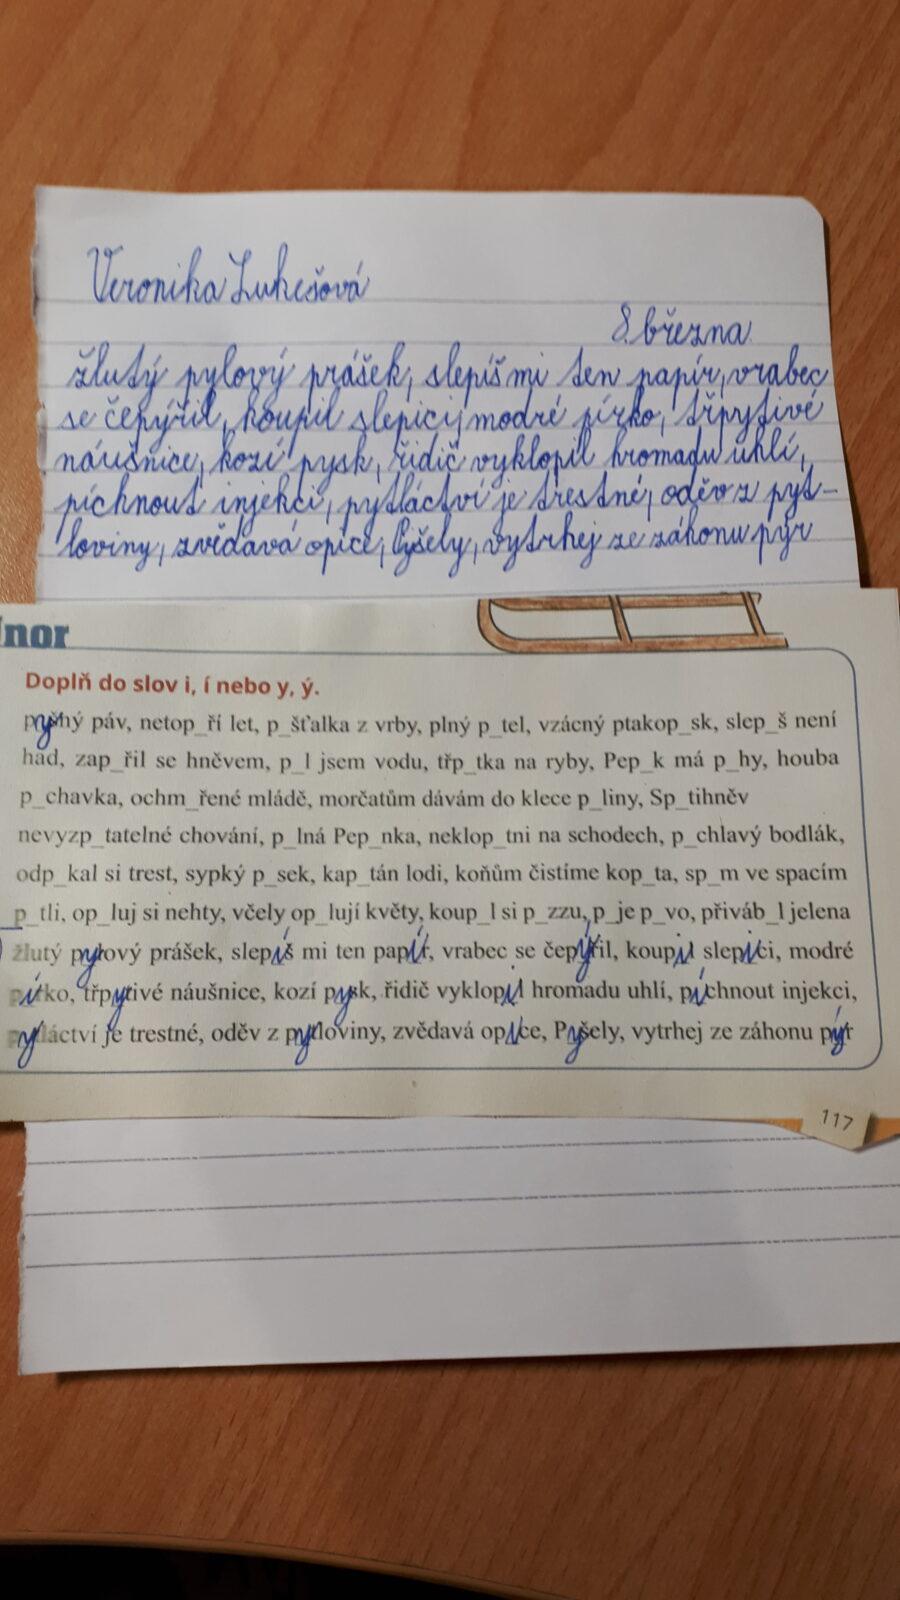 Veronika Lukešová
8. března
žlutý pylový prášek, slepíš mi ten papír, vrabec
se čepýřil, koupil slepici, modré pírko, třpytivé
náušnice, kozí pysk, řidič vyklopil hromadu uhlí,
píchnout injekci, pytláctví je trestné, oděv z pyt-
loviny, zvědavá opice, Pyšely, vytrhej ze záhonu pýr
Únor
Doplň do slov i, í nebo y, ý.
pyšný páv, netop_ří let, p_šťalka z vrby, plný p_tel, vzácný ptakop_sk, slep_š není
had, zap_řil se hněvem, p_l jsem vodu, třp_tka na ryby, Pep_k má p_hy, houba
p_chavka, ochm_řené mládě, morčatům dávám do klece p_liny, Sp_tihněv
nevyzp_tatelné chování, p_lná Pep_nka, neklop_tni na schodech, p_chlavý bodlák,
odp_kal si trest, sypký p_sek, kap_tán lodi, koňům čistíme kop_ta, sp_m ve spacím
p_tli, op_luj si nehty, včely op_lují květy, koup_l si p_zzu, p_je p_vo, přiváb_l jelena
žlutý pylový prášek, slepíš mi ten papír, vrabec se čepýřil, koupil slepici, modré
pírko, třpytivé náušnice, kozí pysk, řidič vyklopil hromadu uhlí, píchnout injekci,
pytláctví je trestné, oděv z pytloviny, zvědavá opice, Pyšely, vytrhej ze záhonu pýr
117